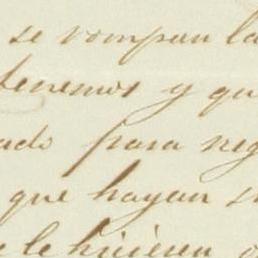 se rompan la
tenemos y qu
ado para neg
que hayan s
le hicieren